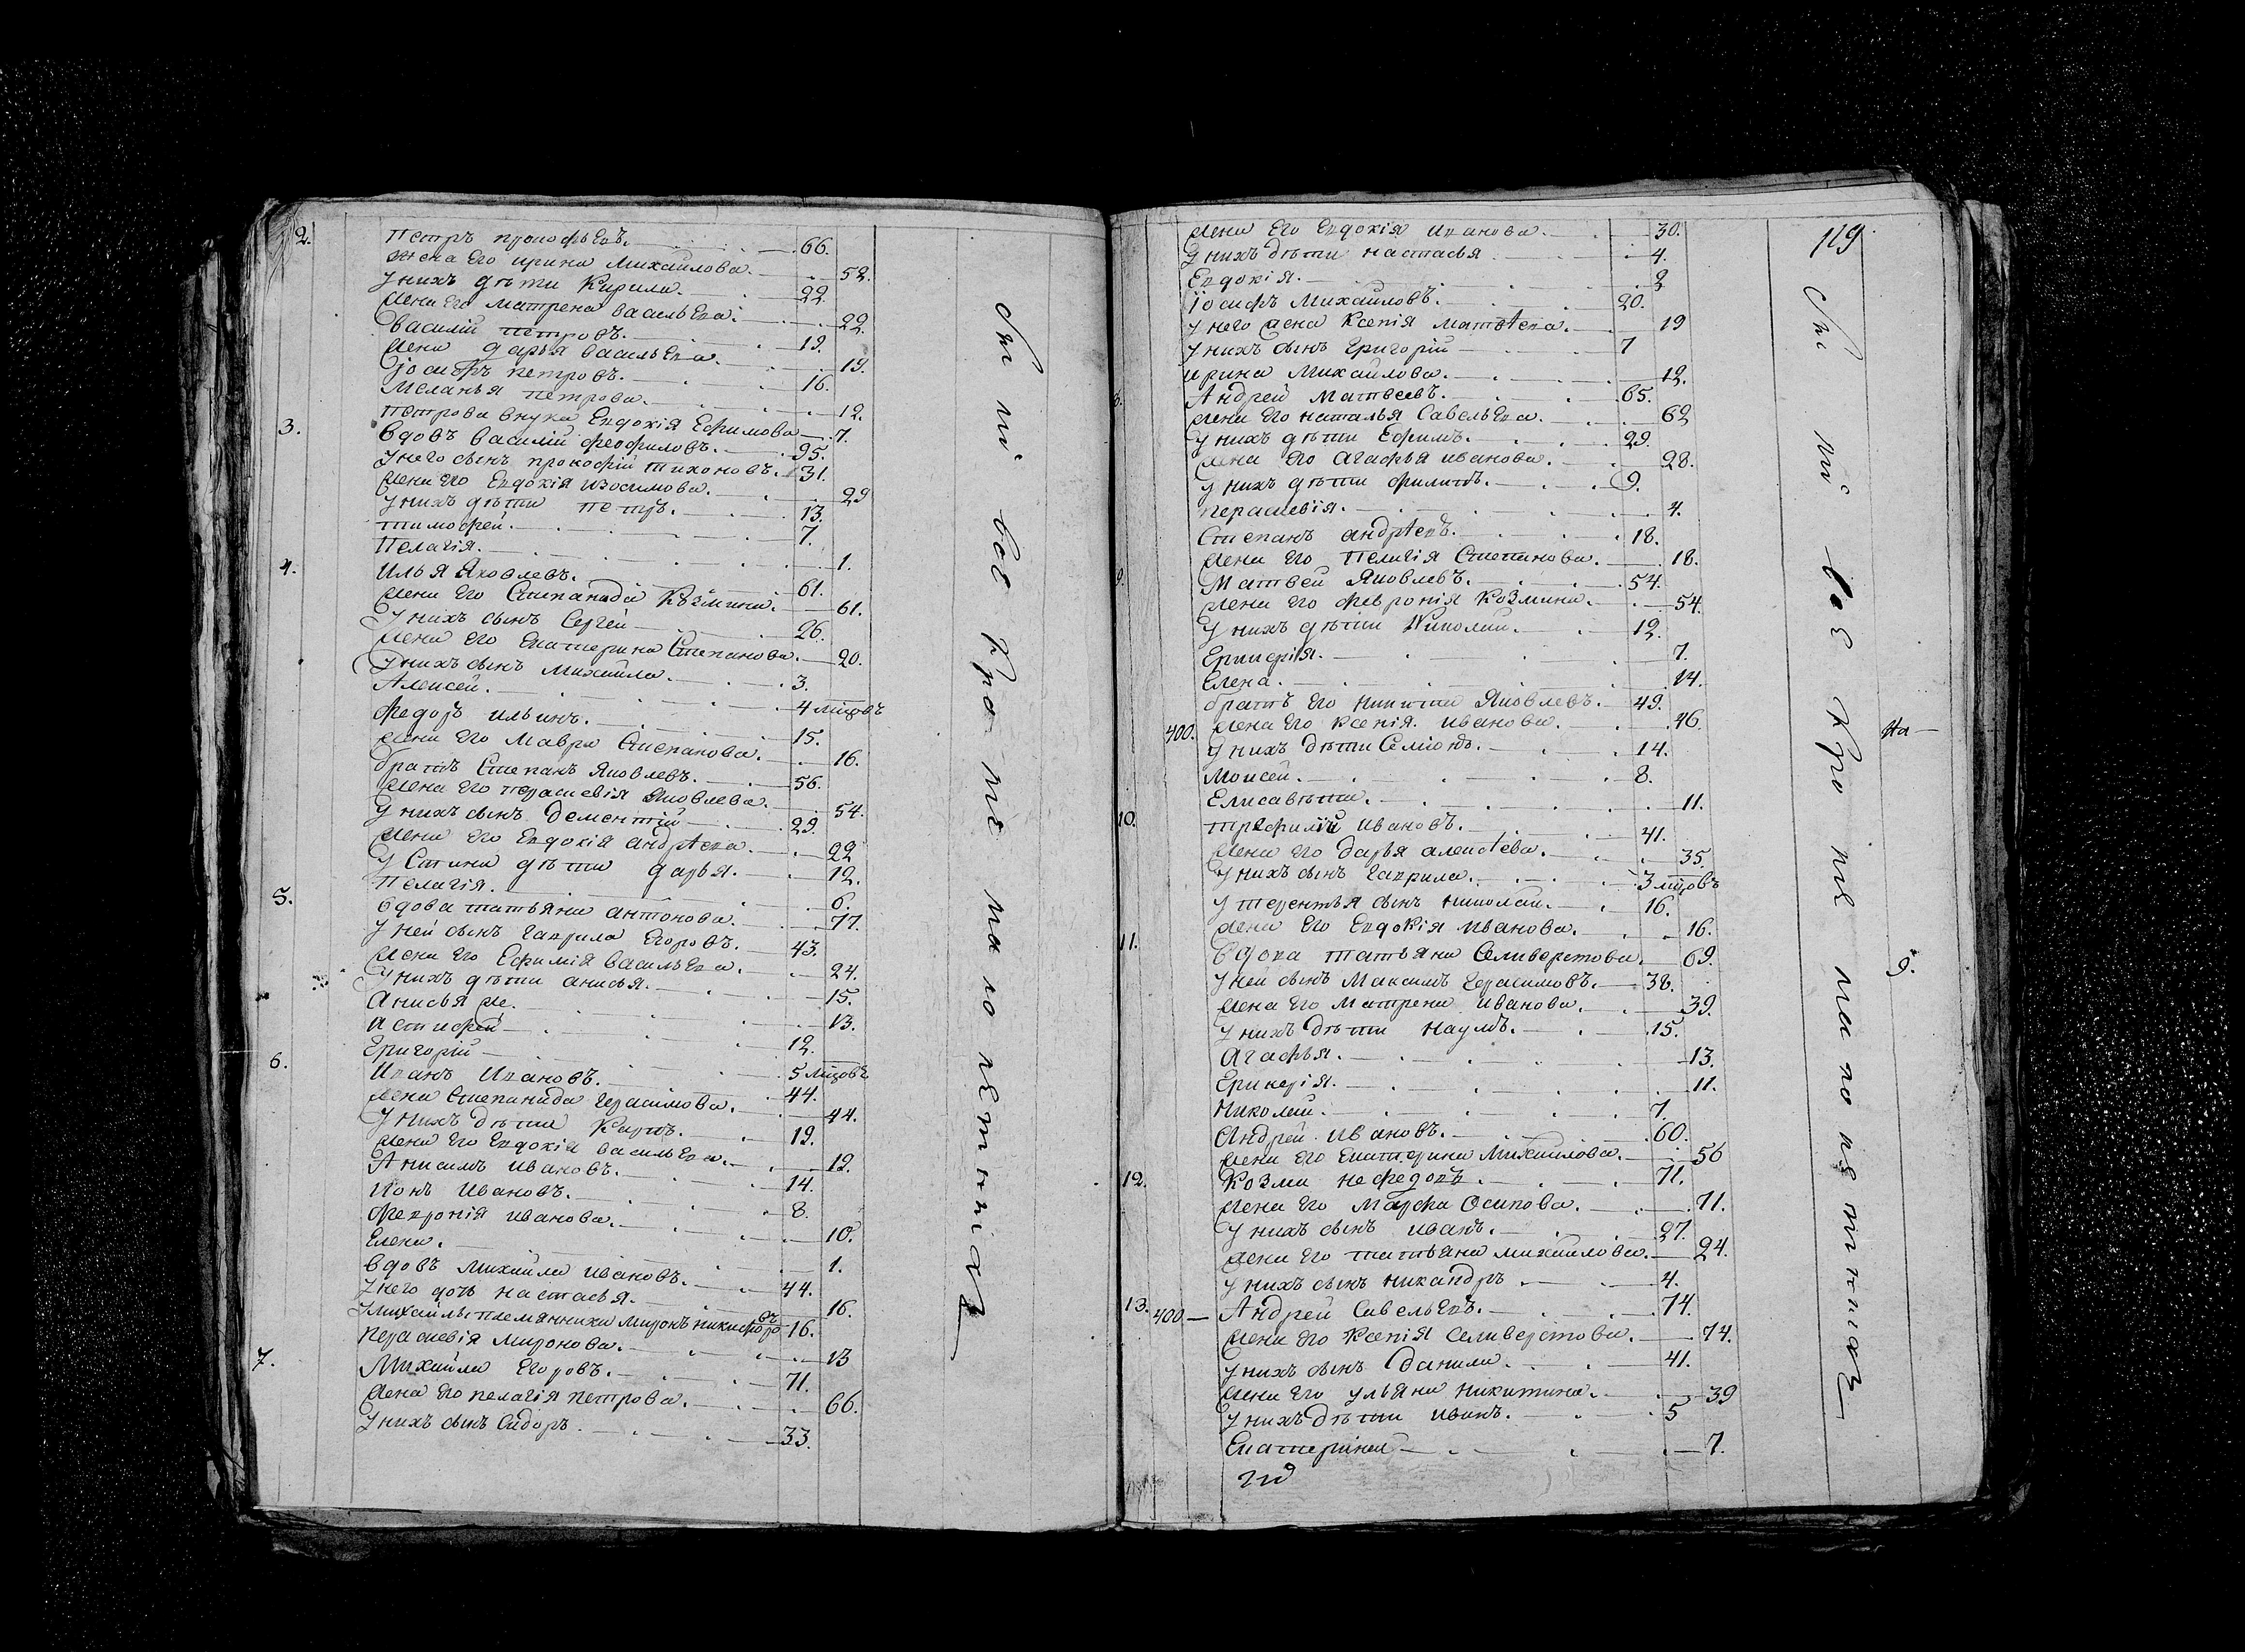 2. Петръ прокофьевъ. 66.
Жена Его ирина Михайлова. 52.
у нихъ дѣти Кирила. 22.
Жена Его матрена васильева. 22.
василій петровъ. 19.
Жена дарья васильева. 19.
іосифъ петровъ. 16.
Меланья петрова. 12.
петрова внука Евдокія Ефимова 7.
3. вдовъ василій феофиловъ. 95.
у него сынъ прокофій тихоновъ. 31.
Жена Его Евдокія изосимова. 29
у нихъ дѣти петръ. 13.
тимофей. 7.
Пелагія. 1.
4. Илья Яковлевъ. 61.
Жена Его Степанида Козмина. 61.
у нихъ сынъ Сергей 26.
Жена Его Екатерина Степанова. 20.
у нихъ сынъ михайла. 3.
Алексей. 4 мцовъ
федоръ ильинъ. 15.
Жена Его мавра Степанова. 16.
братъ Степанъ Яковлевъ. 56.
Жена Его параскевія Яковлева. 54.
у нихъ сынъ дементій 29.
Жена Его Евдокія андрѣева. 22
дѣти дарья. 12.
Пелагія. 6.
5. вдова татьяна антонова. 77.
у ней сынъ гаврила Егоровъ. 43.
Жена Его Ефимія васильева. 24.
у нихъ дѣти анисья. 15.
Анисья же. 13.
12.
Григорій 5 мцовъ
6. Иванъ Ивановъ. 44.
Жена Степанида Герасимова. 44.
у нихъ дѣти Карпъ. 19.
Жена Его Евдокія васильева. 19.
Анисимъ ивановъ. 14.
Ионъ Ивановъ. 8.
Февронія иванова. 10.
Елена. 1.
вдовъ михайла ивановъ. 44.
у него дочь настасья. 16.
у михайлы племянники миронъ никифоровъ 16.
Параскевія Миронова. 13
7. Михайла Егоровъ. 71.
Жена Его пелагія петрова. 66.
у нихъ сынъ Сидоръ. 33.
вое кро ме ма ло ле т н и х ъ
119
Жена Его Евдокія иванова. 30.
у нихъ дѣти настасья 4.
Евдокія. 2
іосифъ михайловъ. 20.
у него жена Ксенія матвѣева. 19
у нихъ сынъ Григорій 7
ирина михайлова. 12.
8. Андрей матвеевъ. 65.
Жена Его наталья Савельева. 62
у нихъ дѣти Ефимъ. 29.
Жена Его агафья иванова. 28.
у нихъ дѣти филипъ. 9.
параскевія. 4.
Степанъ андрѣевъ. 18.
Жена Его Пелагія Степанова. 18.
9. Матвей Яковлевъ. 54.
Жена Его февронія Козмина. 54.
у нихъ дѣти Николай. 12.
Гликерія. 7.
Елена. 14.
братъ Его никита Яковлевъ. 49.
400. Жена Его Ксенія иванова. 46.
у нихъ дѣти Семіонъ. 14.
Моисей. 8.
Елисавѣта. 11.
10. трефилій ивановъ. 41.
Жена Его дарья алексѣева. 35.
у нихъ сынъ гаврила. 3 мцовъ
у терентья сынъ николай. 16.
Жена Его Евдокія иванова. 16.
11. вдова татьяна Селиверстова. 69.
у ней сынъ Максимъ герасимовъ. 38.
Жена Его Матрена иванова. 39.
у нихъ дѣти наумъ. 15.
Агафья. 13.
Гликерія. 11.
николай. 7.
Андрей ивановъ. 60.
Жена Его Екатерина Михайлова. 56
12. Козма нефедовъ. 71.
Жена Его Марфа Осипова. 71.
у нихъ сынъ иванъ. 27.
Жена Его татьяна михайлова. 24.
у нихъ сынъ никандръ. 4.
13. 400 Андрей Савельевъ. 74.
Жена Его Ксенія Селиверстова. 74.
у нихъ сынъ данила. 41.
Жена Его ульяна никитина. 39
у нихъ дѣти иванъ. 5
Екатерина 7.
вое кро ме ма ло ле т н и х ъ
на
9.